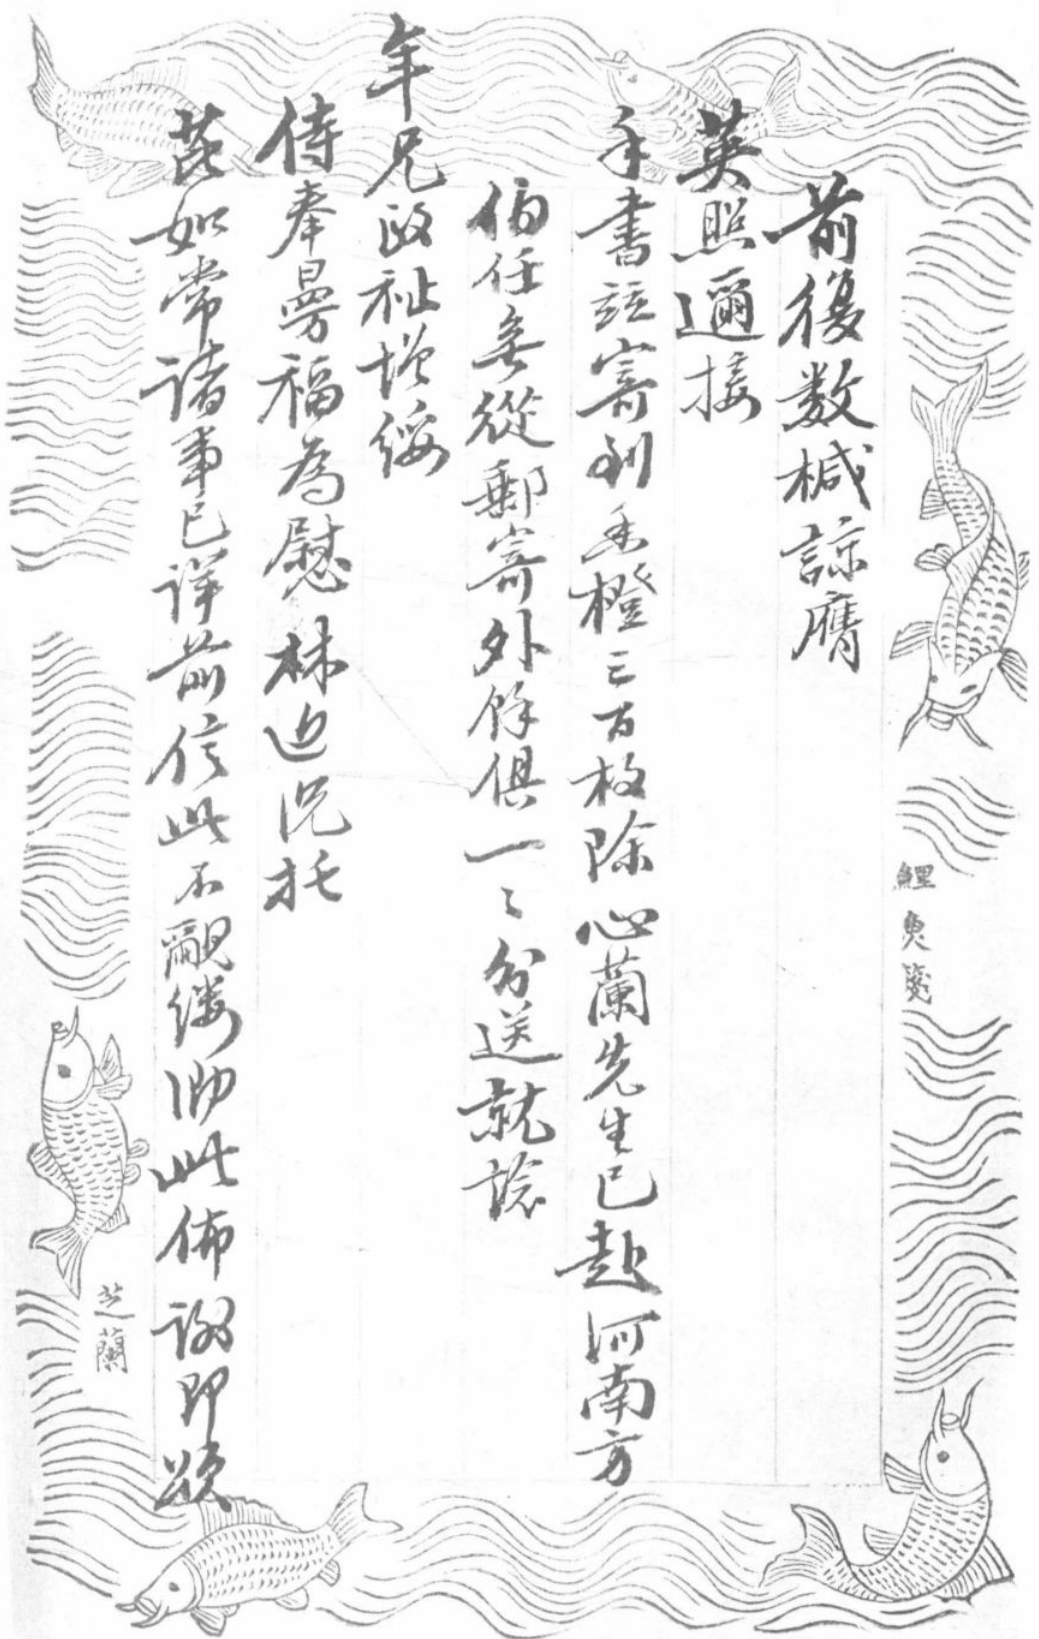 前復数椷諒膺
英照邇接
手書并寄到香橙三百枚除心蘭先生已赴河南方
伯任無從郵寄外餘俱一々分送就諗
年兄政祉增綏
侍奉曼福為慰林近況托
芘如常諸事已詳前信此不覼縷泐此佈謝即頌
鯉魚箋
芝蘭